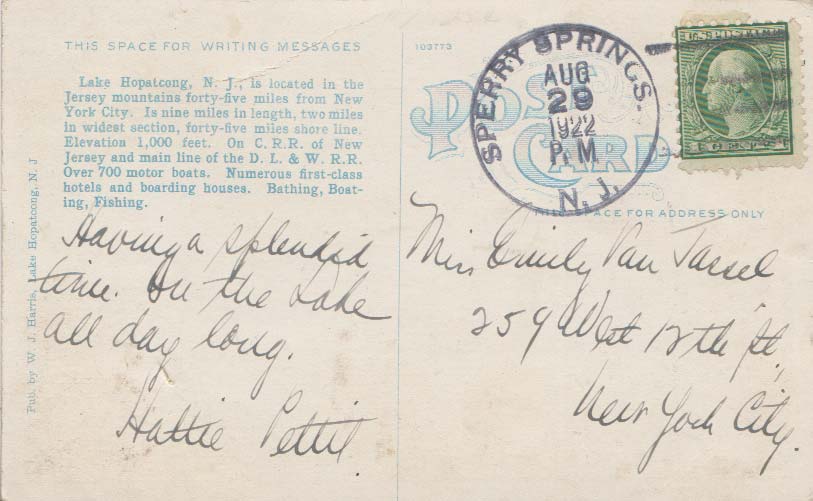 THIS SPACE FOR WRITING MESSAGES
Lake Hopatcong, N. J., is located in the
Jersey mountains forty-five miles from New
York City. Is nine miles in length, two miles
in widest section, forty-five miles shore line.
Elevation 1,000 feet. On C. R. R. of New
Jersey and main line of the D. L. & W. R. R.
Over 700 motor boats. Numerous first-class
hotels and boarding houses. Bathing, Boat-
ing, Fishing.
Having a splendid
time. On the Lake
all day long.
Hattie Pettit.
Pub. by W. J. Harris, Lake Hopatcong, N. J
103773
POST
CARD
SPERRY SPRINGS.
AUG
29
1922
P. M
N. J.
THIS SPACE FOR ADDRESS ONLY
Miss Emily Van Tassel
259 West 12th St.,
New York City.